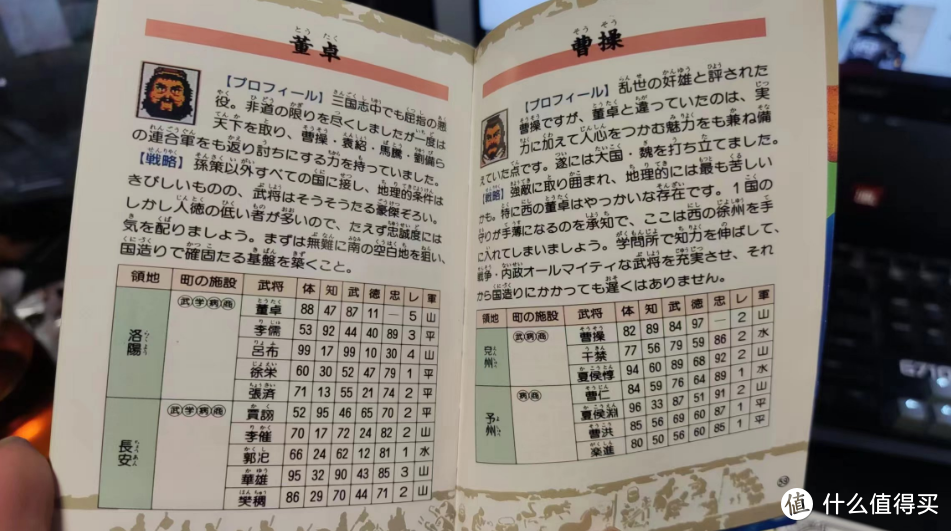 董卓
【プロフィール】三国志中でも屈指の悪
役。非道の限りを尽くしましたが一度は
天下を取り、曹操・袁紹・馬騰・劉備ら
の連合軍をも返り討ちにする力を持っていました。
【戦略】孫策以外すべての国に接し、地理的条件は
きびしいものの、武将はそうそうたる豪傑ぞろい。
しかし人徳の低い者が多いので、たえず忠誠度には
気を配りましょう。まずは無難に南の空白地を狙い、
国造りで確固たる基盤を築くこと。
領地 町の施設 武将 体 知 武 徳 忠 レ 軍
洛陽 武学病商 董卓 88 47 87 11 — 5 山
李儒 53 92 44 40 89 3 平
呂布 99 17 99 10 30 4 山
徐栄 60 30 52 47 79 1 平
張済 71 13 55 21 74 2 平
長安 武学病商 賈詡 52 95 46 65 70 2 平
李傕 70 17 72 24 82 2 山
郭汜 66 24 62 12 81 1 水
華雄 95 32 90 43 85 3 山
樊稠 86 29 70 44 71 2 山
曹操
【プロフィール】乱世の奸雄と評された
曹操ですが、董卓と違っていたのは、実
力に加えて人心をつかむ魅力をも兼ね備
えていた点です。遂には大国・魏を打ち立てました。
【戦略】強敵に取り囲まれ、地理的には最も苦しい
かも。特に西の董卓はやっかいな存在です。1国の
守りが手薄になるのを承知で、ここは西の徐州を手
に入れてしまいましょう。学問所で知力を伸ばして、
戦争・内政オールマイティな武将を充実させ、それ
から国造りにかかっても遅くはありません。
領地 町の施設 武将 体 知 武 徳 忠 レ 軍
兗州 武病商 曹操 82 89 84 97 — 2 山
于禁 77 56 79 59 86 2 水
夏侯惇 94 60 89 68 92 2 山
予州 病商 曹仁 84 59 76 64 89 1 水
夏侯淵 96 33 87 51 91 2 山
曹洪 85 56 69 60 87 1 平
楽進 80 50 56 60 85 1 平
值 什么值得买